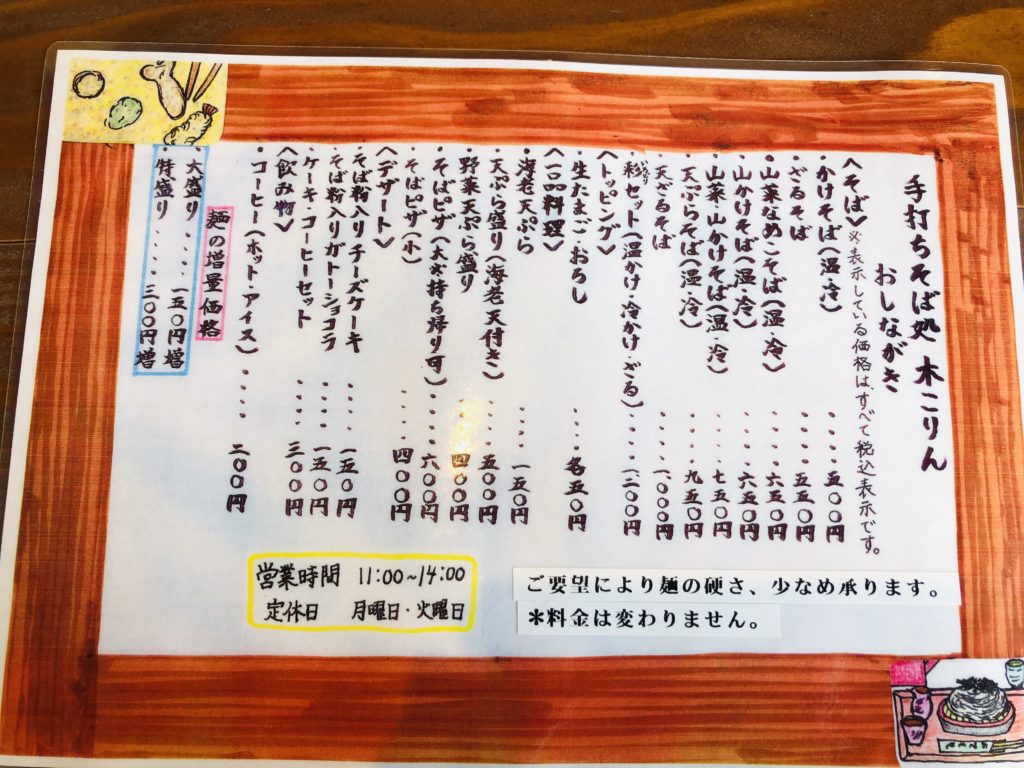 手打ちそば処 木こりん
おしながき
〈そば〉※表示している価格は、すべて税込表示です。
・かけそば（温・冷）・・・・五〇〇円
・ざるそば・・・・五五〇円
・山菜なめこそば（温・冷）・・・・六五〇円
・山かけそば（温・冷）・・・・六五〇円
・山菜山かけそば（温・冷）・・・・七五〇円
・天ぷらそば（温・冷）・・・・九五〇円
・天ざるそば・・・・一、〇〇〇円
・彩セット（温かけ・冷かけ・ざる）・・・・
〈トッピング〉
・生たまご・おろし・・・・各五〇円
〈一品料理〉
・海老天ぷら・・・・一五〇円
・天ぷら盛り（海老天付き）・・・・五〇〇円
・野菜天ぷら盛り・・・・四〇〇円
・そばピザ（大※持ち帰り可）・・・・六〇〇円
・そばピザ（小）・・・・四〇〇円
〈デザート〉
・そば粉入りチーズケーキ・・・・一五〇円
・そば粉入りガトーショコラ・・・・一五〇円
・ケーキ・コーヒーセット・・・・三〇〇円
〈飲み物〉
・コーヒー（ホット・アイス）・・・・二〇〇円
麺の増量価格
大盛り・・・・一五〇円増
特盛り・・・・三〇〇円増
営業時間 11:00～14:00
定休日 月曜日・火曜日
ご要望により麺の硬さ、少なめ承ります。
＊料金は変わりません。